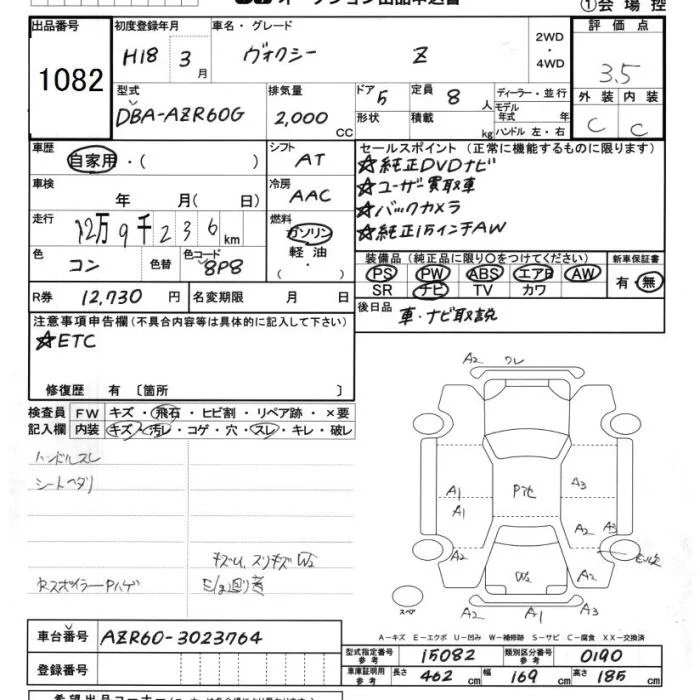 オークション出品申込書
①会場控
出品番号 初度登録年月 車名・グレード 2WD・4WD 評価点
1082 H18 3月 ヴォクシー Z 3.5
型式 排気量 ドア 定員 ディーラー・並行 外装 内装
DBA-AZR60G 2,000 CC 5 8人 モデル年式 年 C C
形状 積載 kg ハンドル 左・右
車歴 シフト セールスポイント (正常に機能するものに限ります)
自家用・( ) AT ☆純正DVDナビ
車検 冷房 ☆ユーザー買取車
年 月( 日) AAC ☆バックカメラ
走行 12万9千236km 燃料 ガソリン ☆純正15インチAW
軽油
・( )
色 コン 色替 色コード 8P8 装備品 (純正品に限り○をつけてください) 新車保証書
PS PW ABS エアB AW 有・無
SR ナビ TV カワ
R券 12,730円 名変期限 月 日 後日品 車・ナビ取説
注意事項申告欄(不具合内容等は具体的に記入して下さい)
☆ETC
修復歴 有 〔箇所 〕
検査員 FW キズ・飛石・ヒビ割・リペア跡・×要
記入欄 内装 キズ・汚レ・コゲ・穴・スレ・キレ・破レ
ハンドルスレ
シートヘタリ
キズU、スリキズW2
RスポイラーPハゲ
A2 ワレ
A1 Pitk A3
A1
A2 A3
A2 W2 A2
スペア A2 A1 A3
A-キズ E-エクボ U-凹み W-補修跡 S-サビ C-腐食 XX-交換済
車台番号 AZR60-3023764
登録番号
型式指定番号 参考 15082 類別区分番号 参考 0190
車庫証明用 参考 長さ 462 cm 幅 169 cm 高さ 185 cm
希望出品コーナー